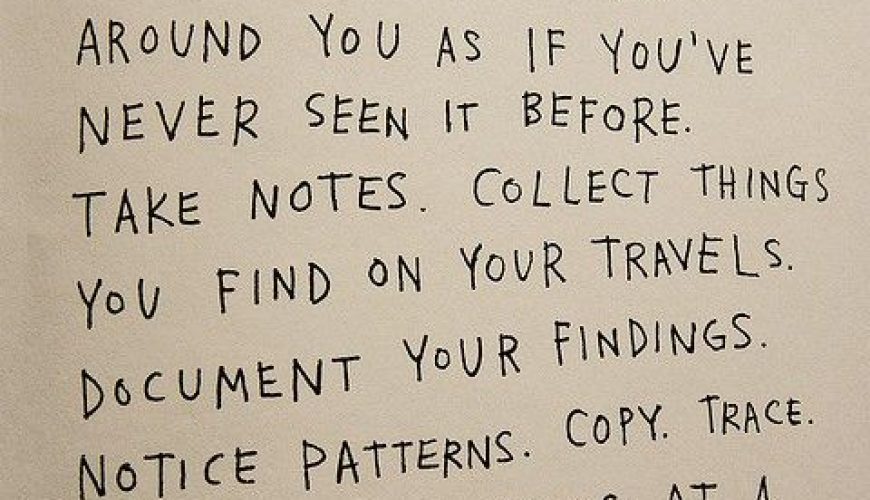 AROUND YOU AS IF YOU'VE
NEVER SEEN IT BEFORE.
TAKE NOTES. COLLECT THINGS
YOU FIND ON YOUR TRAVELS.
DOCUMENT YOUR FINDINGS.
NOTICE PATTERNS. COPY. TRACE.
AT A